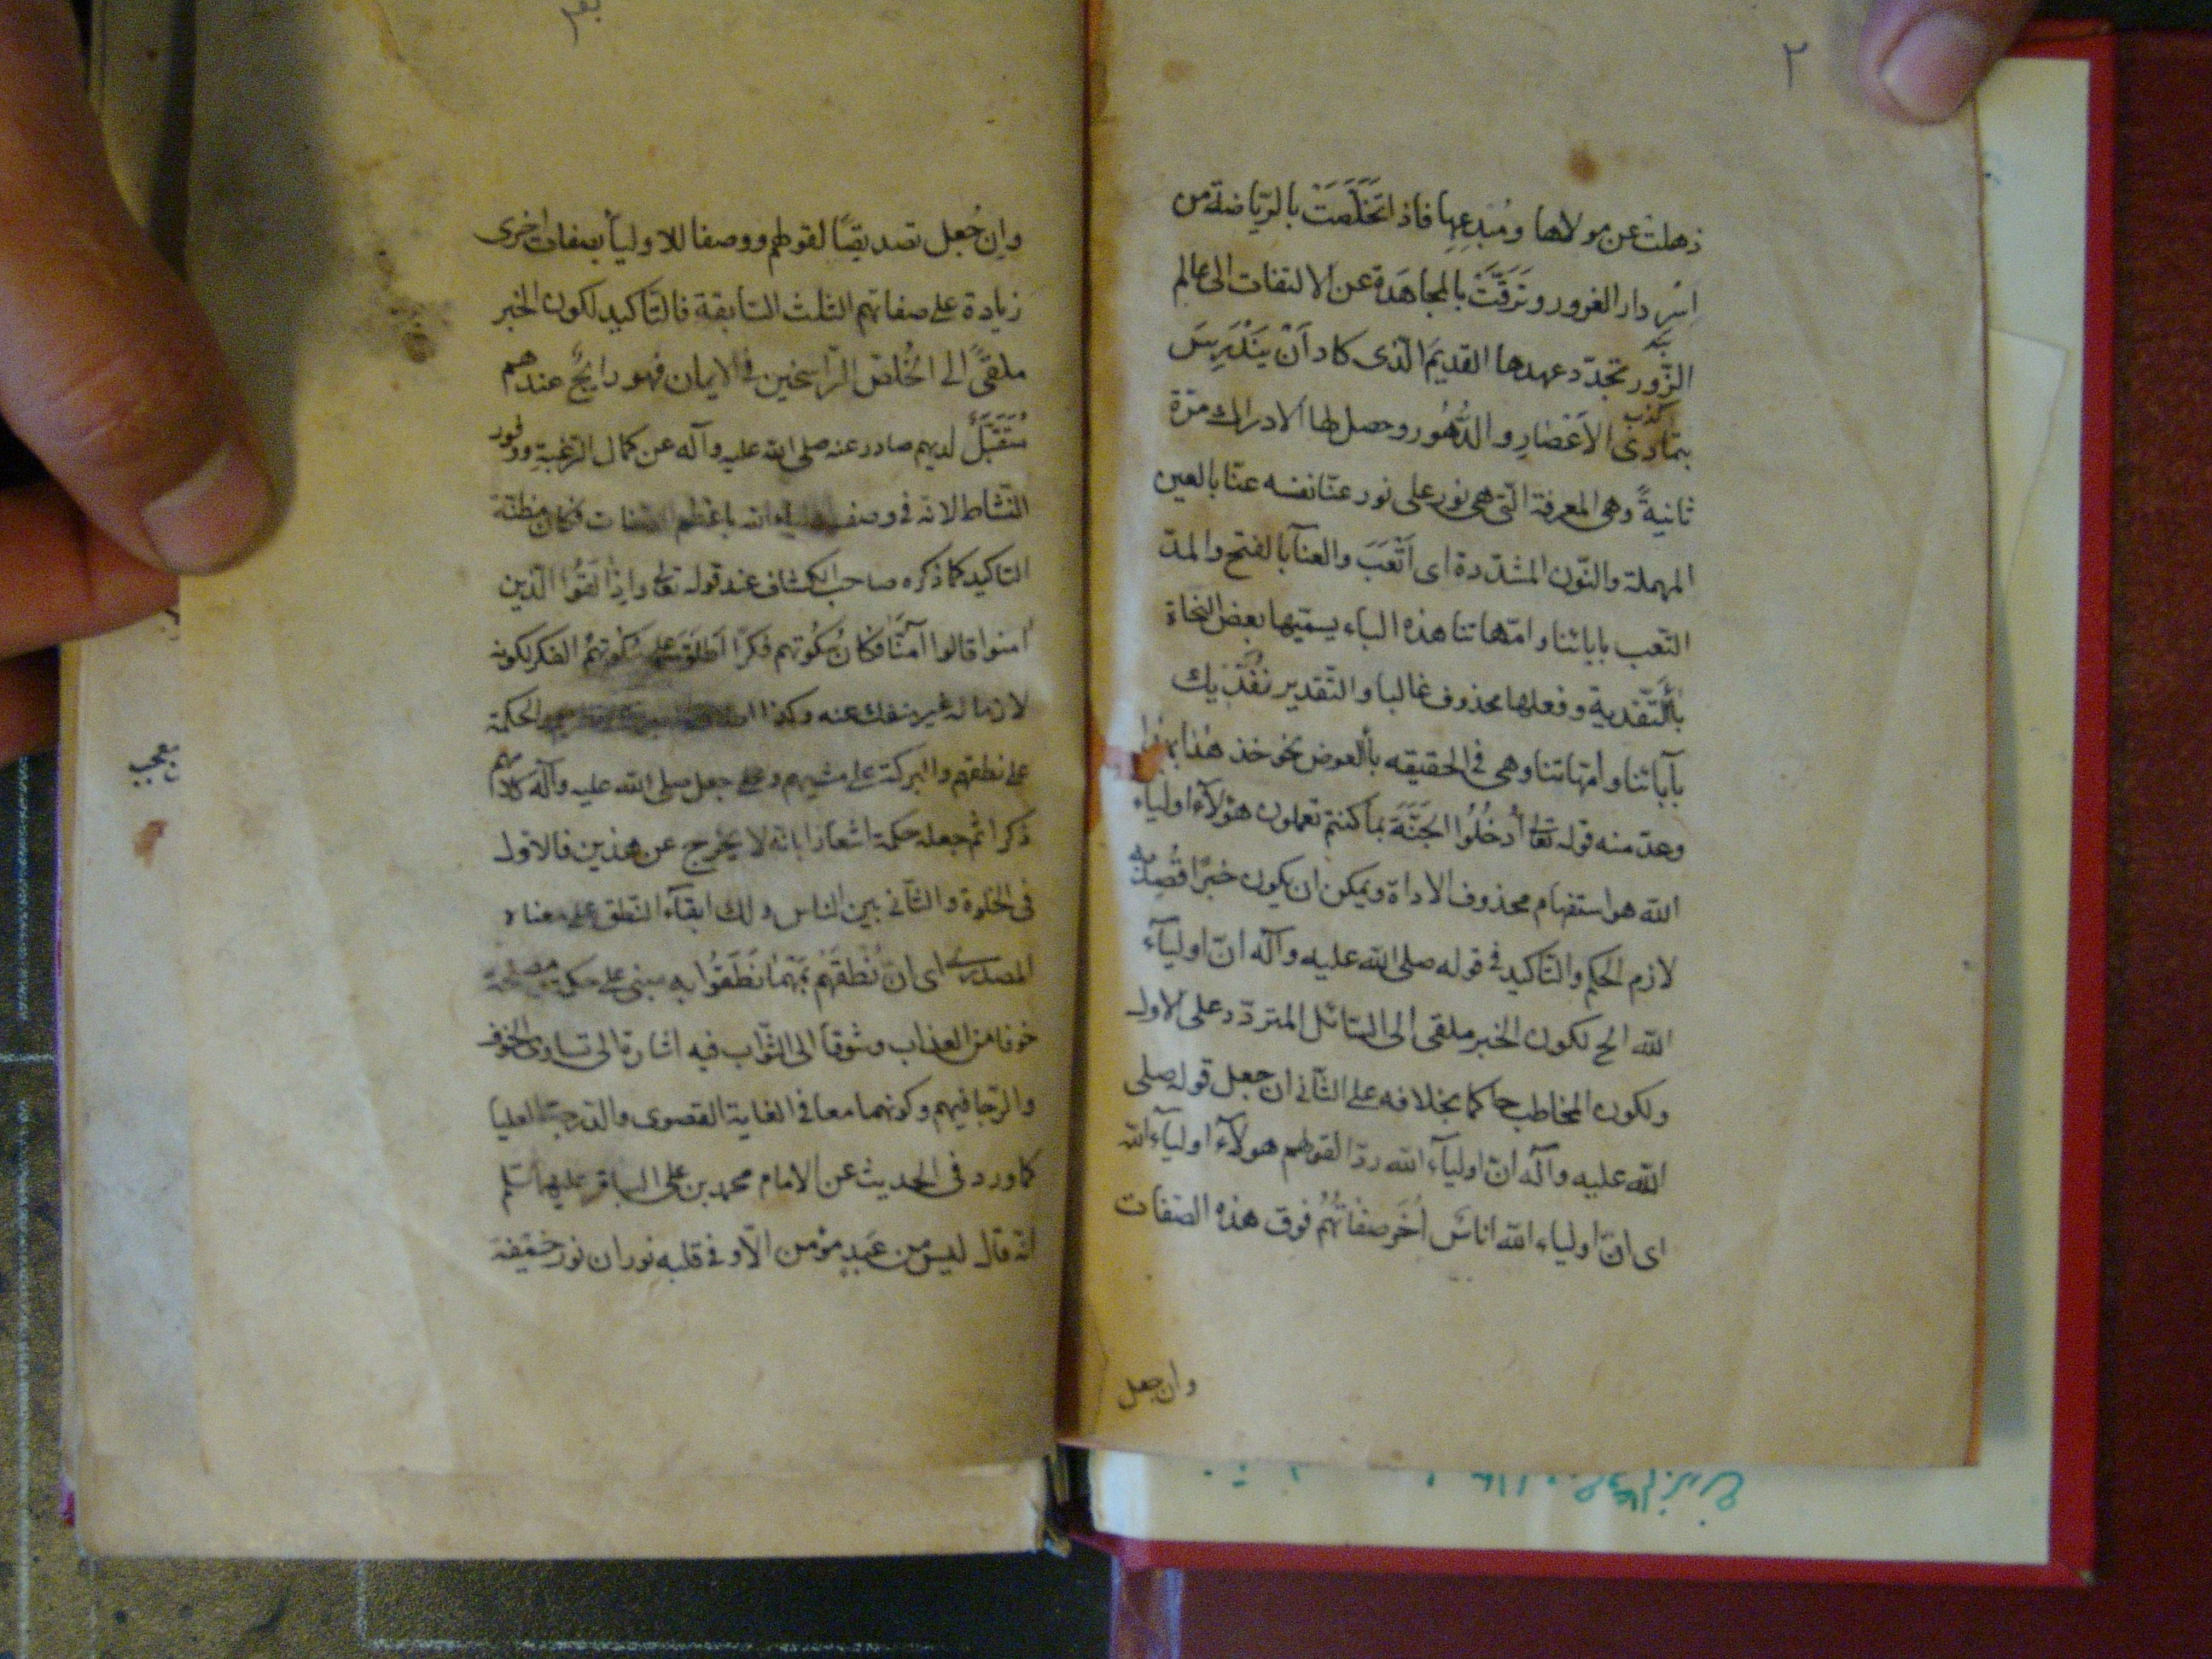 ٢
ذهلت عن مولاها ومُبْدِعِها فاذا تَخَلَّصَتْ بالرّياضة من
اسْرِ دار الغرور وتَرَقَّتْ بالمجاهَدة عن الالتفات الى عالم
الزّور تجدّد عهدها القديمَ الّذى كاد اَنْ يَنْدَرِسَ
كذب
بتمادى الاَعْصارِ والدُّهُور وحصل لها الادراك مرّة
ثانيةً وهى المعرفة الّتى هى نور على نور عنّا نفسه عنّا بالعين
المهملة والنّون المشدّدة اى اَتْعَبَ والعنآ بالفتح والمدّ
التّعب بابائنا وامّهاتنا هذه الباء يسمّيها بعض النحاة
بأَلتّفدية وفعلها محذوف غالبا والتّقدير نفدّيك
بآبائنا وامّهاتنا وهى فى الحقيقه بأالعوض نحو خذ هذا بهذا
وعدّ منه قوله تعالى أُدخُلُوا الجَنَّةَ بما كنتم تعملون هؤلآء اولياء
الله هو استفهام محذوف الاداة ويمكن ان يكون خبرًا قُصِدَ به
لازم الحكم والتّاكيد فى قوله صلى الله عليه وآله انّ اوليآء
الله الخ لكون الخبر ملقى الى السّائل المتردّد على الاول
ولكون المخاطب حاكما بخلافه على الثّانى ان جعل قوله صلى
الله عليه وآله انّ اوليآء الله ردّا لقولهم هولآء اوليآء الله
اى انّ اولياء الله اناسٌ اُخَر صفاتُهُم فوق هذه الصّفات
وان جعل
وان جُعل تصديقًا لقولهم ووصفا للاوليأ بصفات اخرى
زيادة على صفاتهم الثلث السّابقة فالتّاكيد لكون الخبر
ملقىً الى الخُلّص الرّاسخين فى الايمان فهو رايجٌ عندهم
مُتَقَبَّلٌ لديهم صادر عنه صلى الله عليه وآله عن كمال الرّغبة ووفور
النّشاط لانّه فى وصف اولياء الله باعظم الصفات فكان مظنّة
التاكيد كما ذكره صاحب الكشاف عند قوله تعالى واِذْا لَقُوا الّذين
امنوا قالوا آمنّا فكان سُكُوتهم فكرًا اَطْلَقَ على سكوتهم الفكر لكونه
لازما له غير منفك عنه وكذا والحكمة
على نطقهم والبركة على مشيهم وعلى جعل صلى الله عليه وآله كلامهم
ذكرا ثم جعله حكمة اشعارا بانّه لا يخرج عن هذين فالاول
فى الخلوة والثّانى بين الناس ولك ابقآء النّطق على معناه
المصدرى اى انّ نُطْقَهُم بِمَهْمٰا نَطَقُوا به مبنى على حكمة ومصلحة
خوفا من العذاب وشوقا الى الثّواب فيه اشارة الى تساوى الخوف
والرّجا فيهم وكونهما معا فى الغاية القصوى والدّرجة العليا
كما ورد فى الحديث عن الامام محمد بن على الباقر عليهما السّلم
انّه قال ليس من عَبدٍ مؤمن الّا وفى قلبه نوران نور خيفة